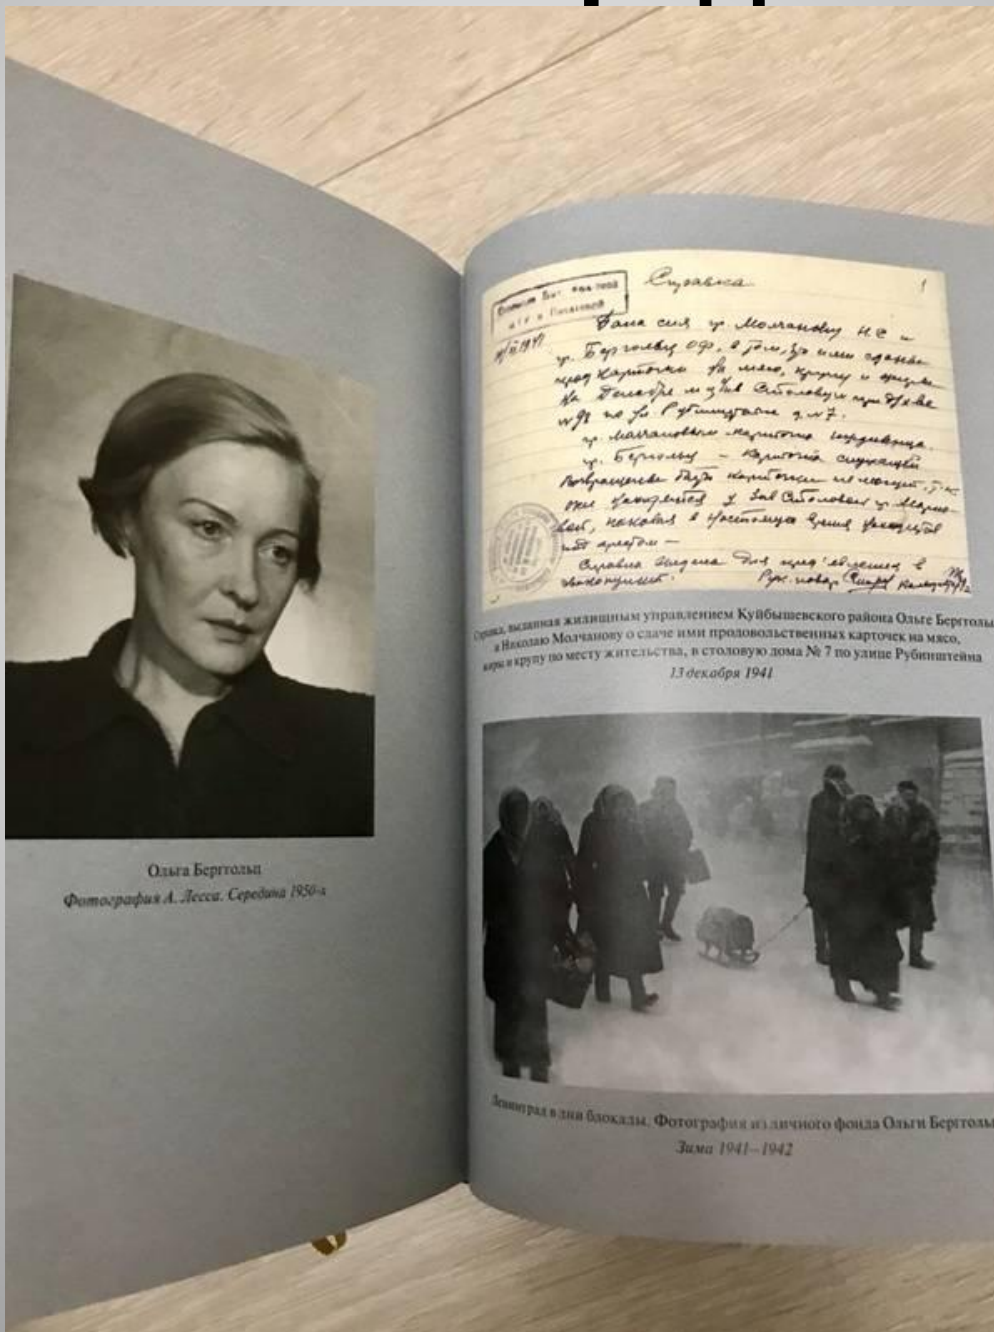 Ольга Берггольц
Фотография А. Лесса. Середина 1950-х
Справка
Дана сия гр. Молчанову Н.С. и
гр. Берггольц О.Ф., в том, что ими сданы
прод карточки на мясо, крупу и
на Декабрь м-ц Зав Столовую при
по ул. Рубинштейна д. №7.
гр. Молчановым карточка иждивенца.
гр. Берггольц – карточка служащей
возвращены быть карточки не могут, т.к
они находятся у Зав Столовой гр.
в настоящее время находится
под арестом —
Справка выдана для пред'явления в
Справка, выданная жилищным управлением Куйбышевского района Ольге Берггольц
и Николаю Молчанову о сдаче ими продовольственных карточек на мясо,
жиры и крупу по месту жительства, в столовую дома № 7 по улице Рубинштейна
13 декабря 1941
Ленинград в дни блокады. Фотография из личного фонда Ольги Берггольц
Зима 1941–1942